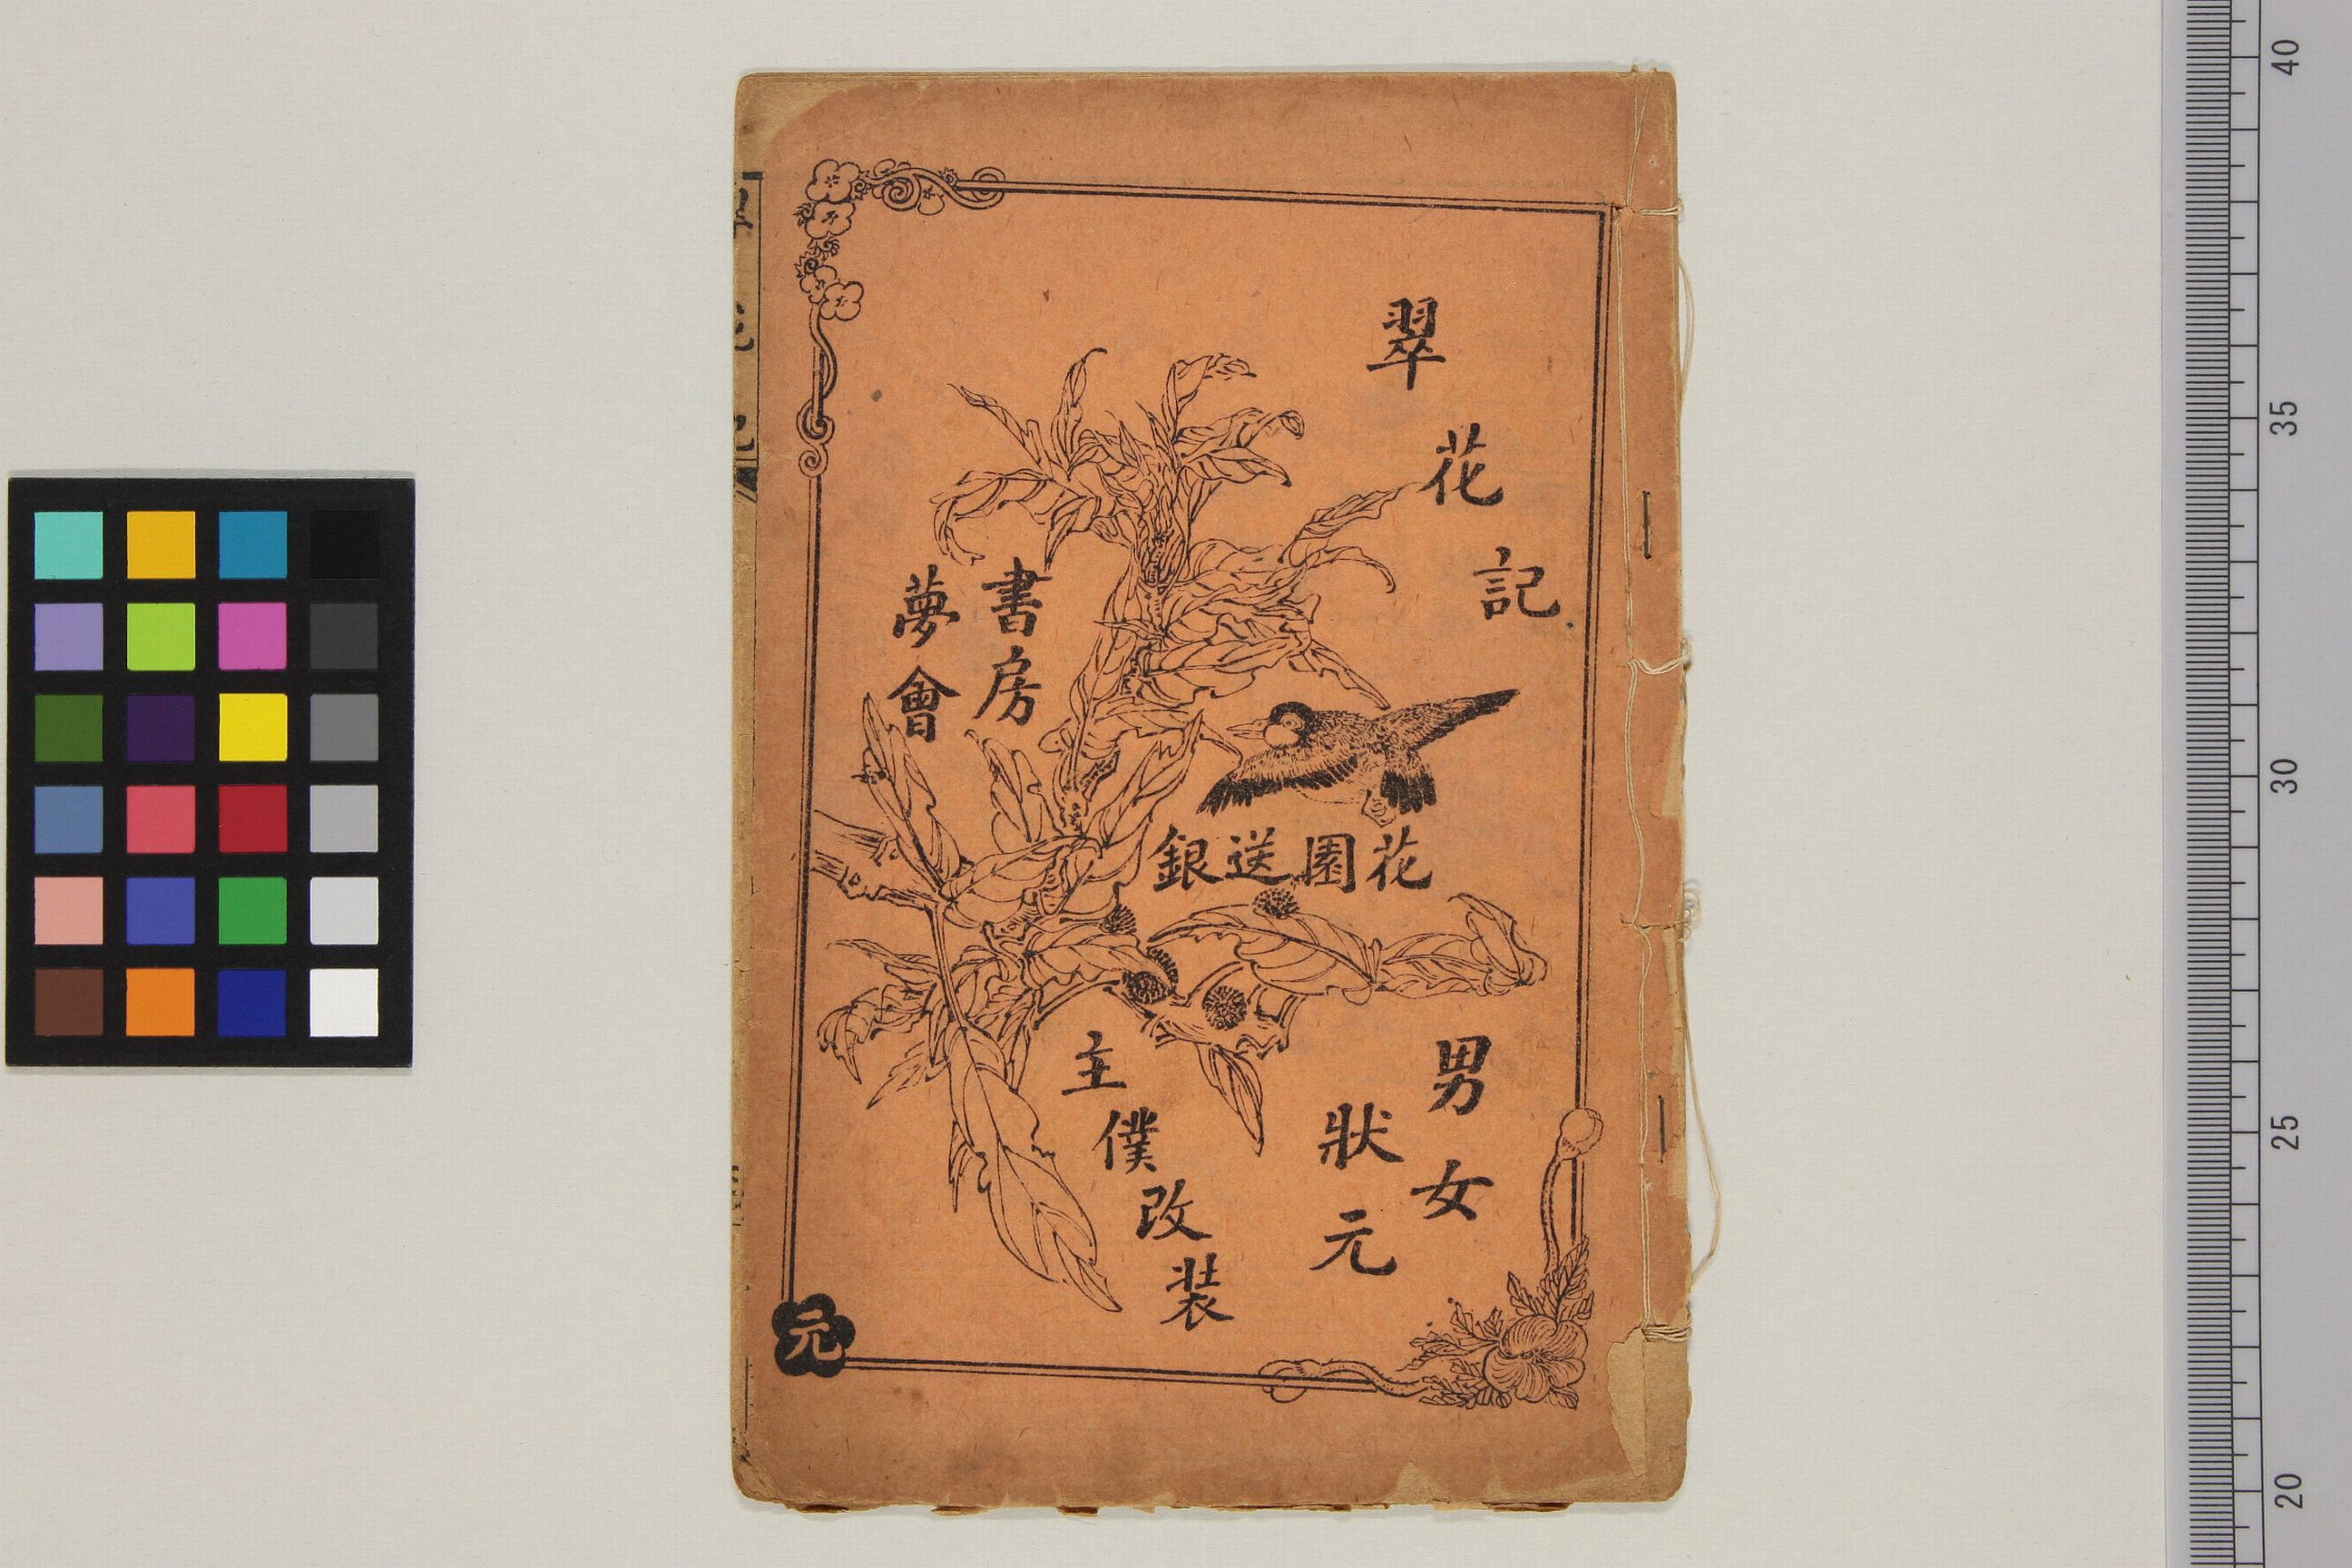 翠花記
書房
夢會
花園送銀
男女
狀元
主僕改装
元
40
35
30
25
20